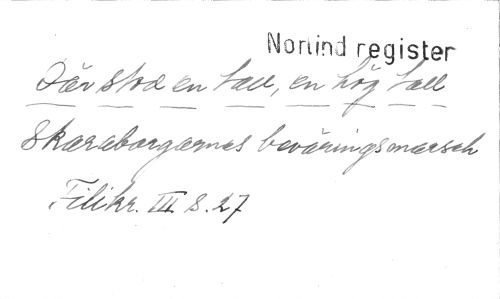 Norlind register
Där stod en tall, en hög tall
Skaraborgarnes beväringsmarsch
Filikr. III s. 27